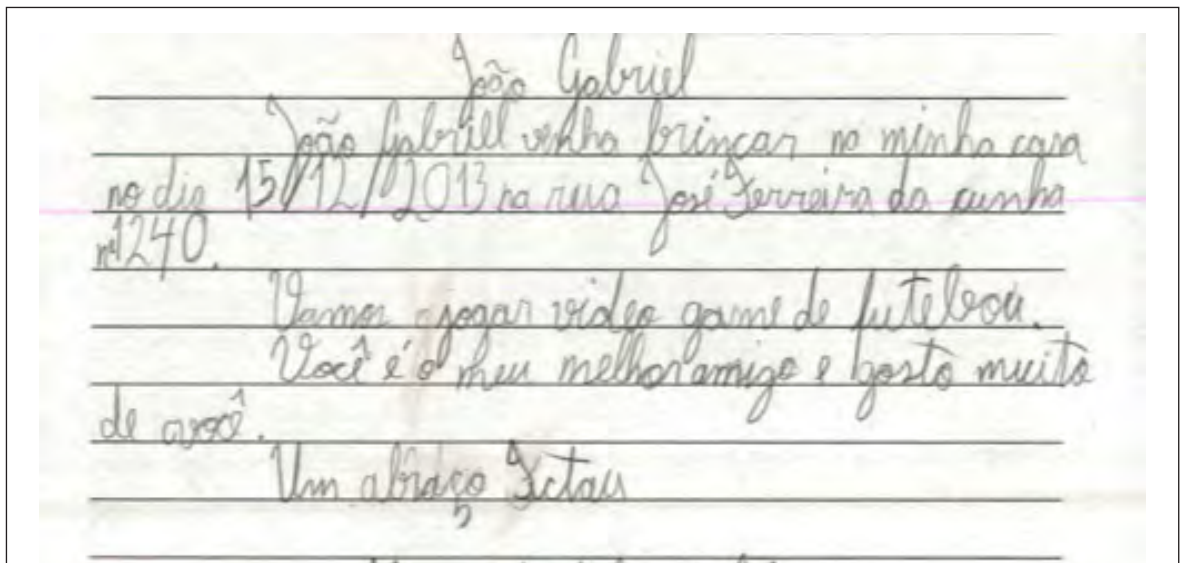 João Gabriel
João Gabriel venha brincar na minha casa
no dia 15/12/2013 na rua José Ferreira da cunha
nº1240.
Vamos jogar video game de futebou.
Você é o meu melhor amigo e gosto muito
de você.
Um abraço